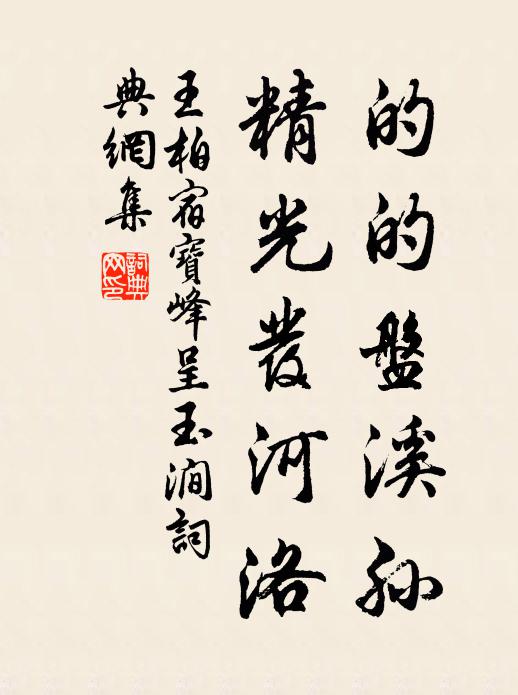 的的盤溪孫
精光發河洛
王柏宿寶峰呈玉澗詞
典網集
詞典網印